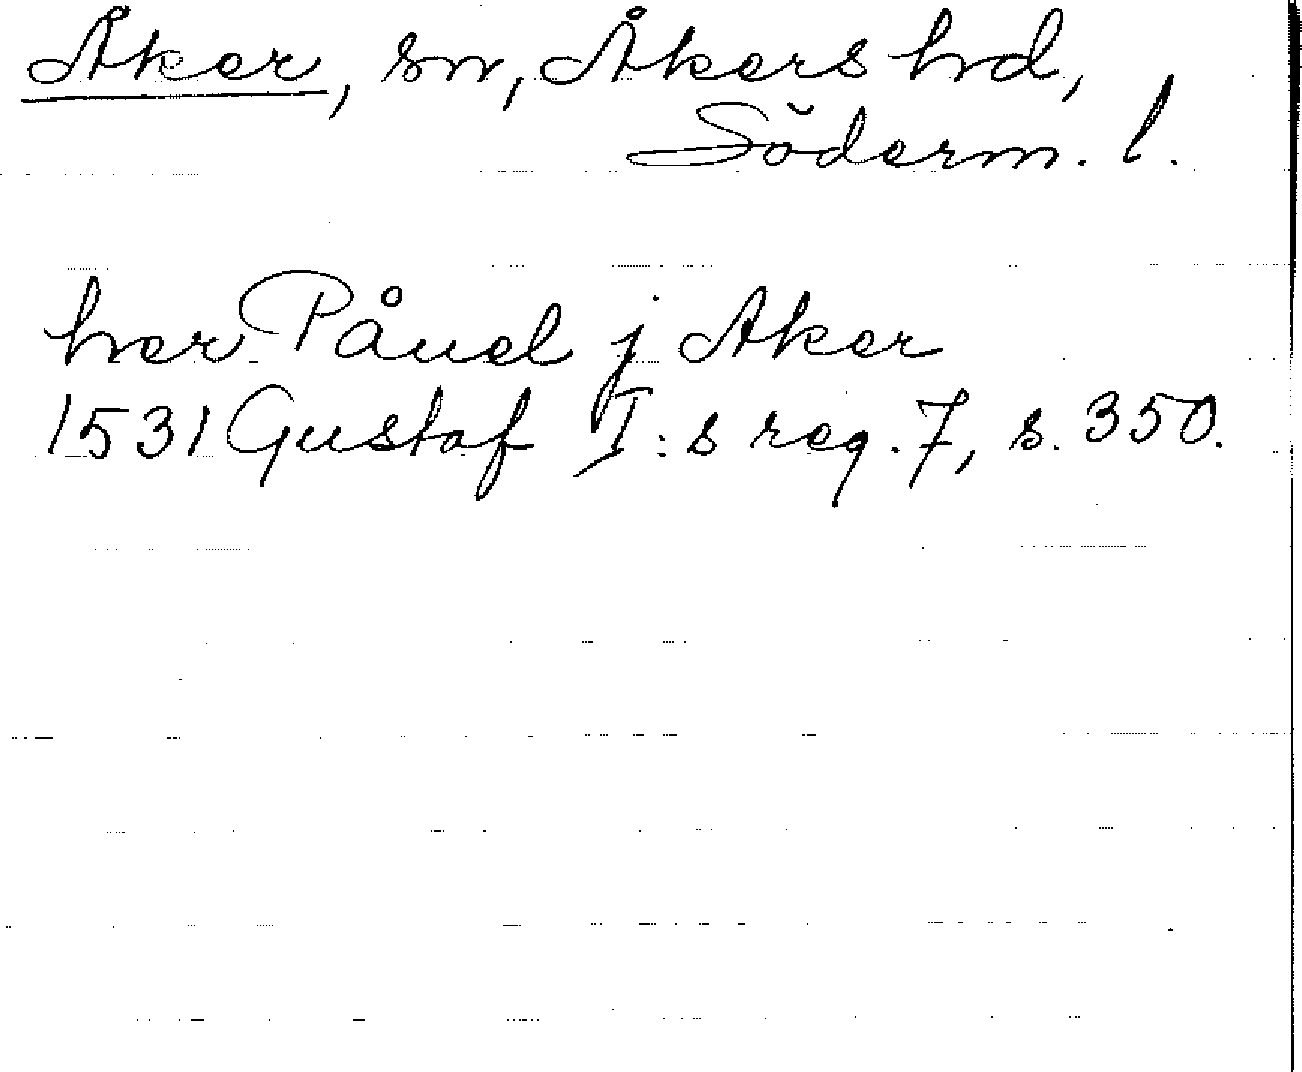 Åker, sn, Åkers hd,
Söderm. l.
her Påuel j Aker
1531 Gustaf I:s reg. 7, s. 350.